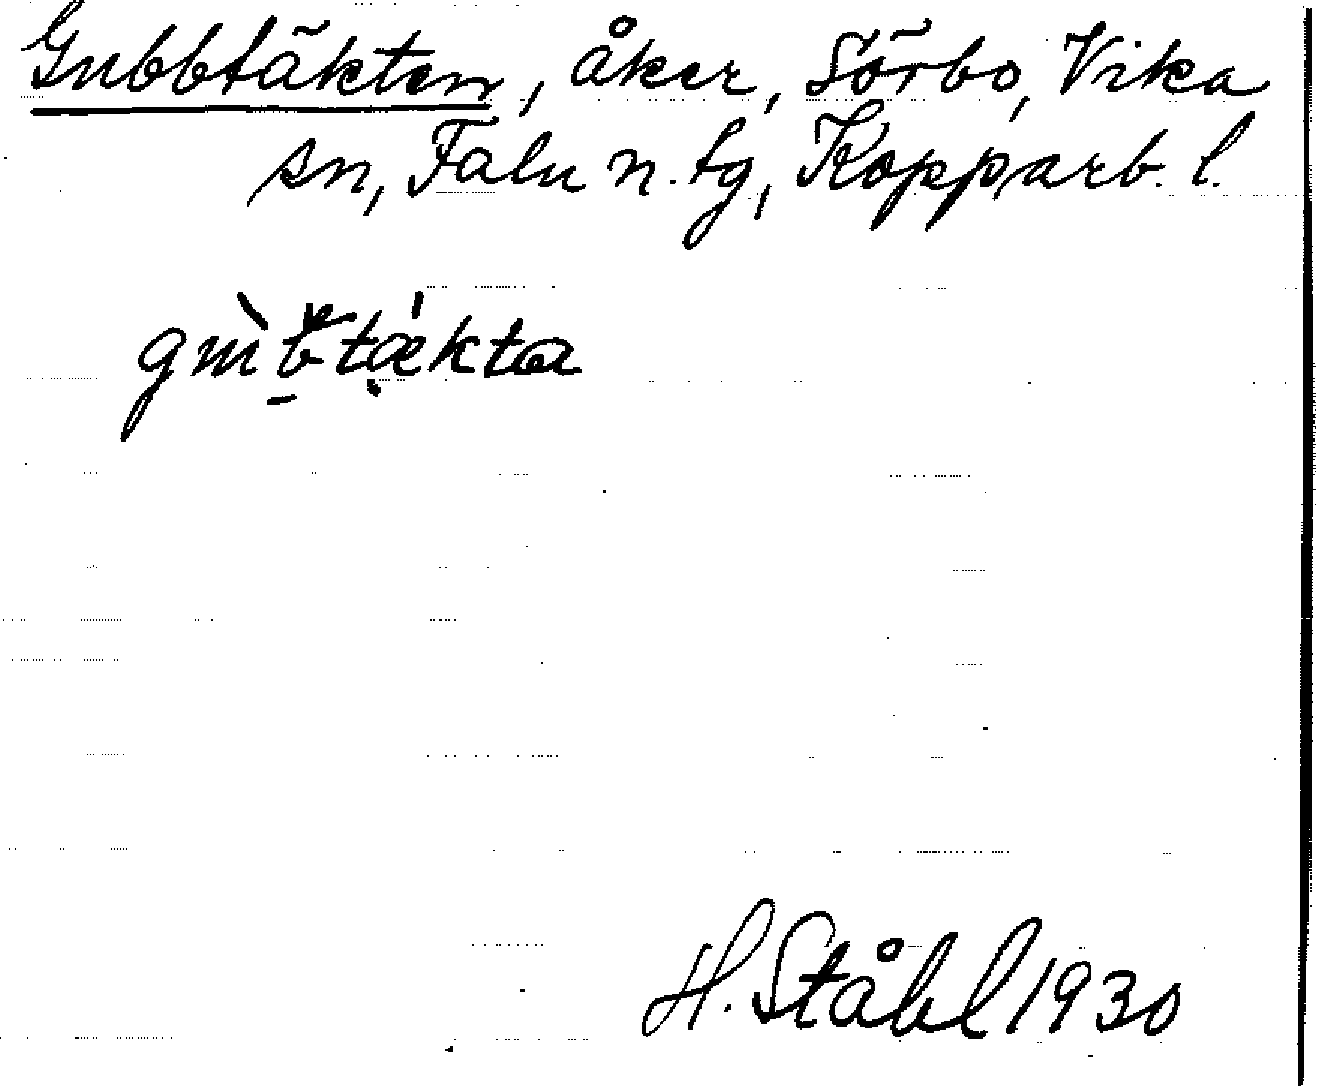 Gubbtäkten, åker, Sörbo, Vika
sn, Falu n. tg, Kopparb. l.
H. Ståhl 1930